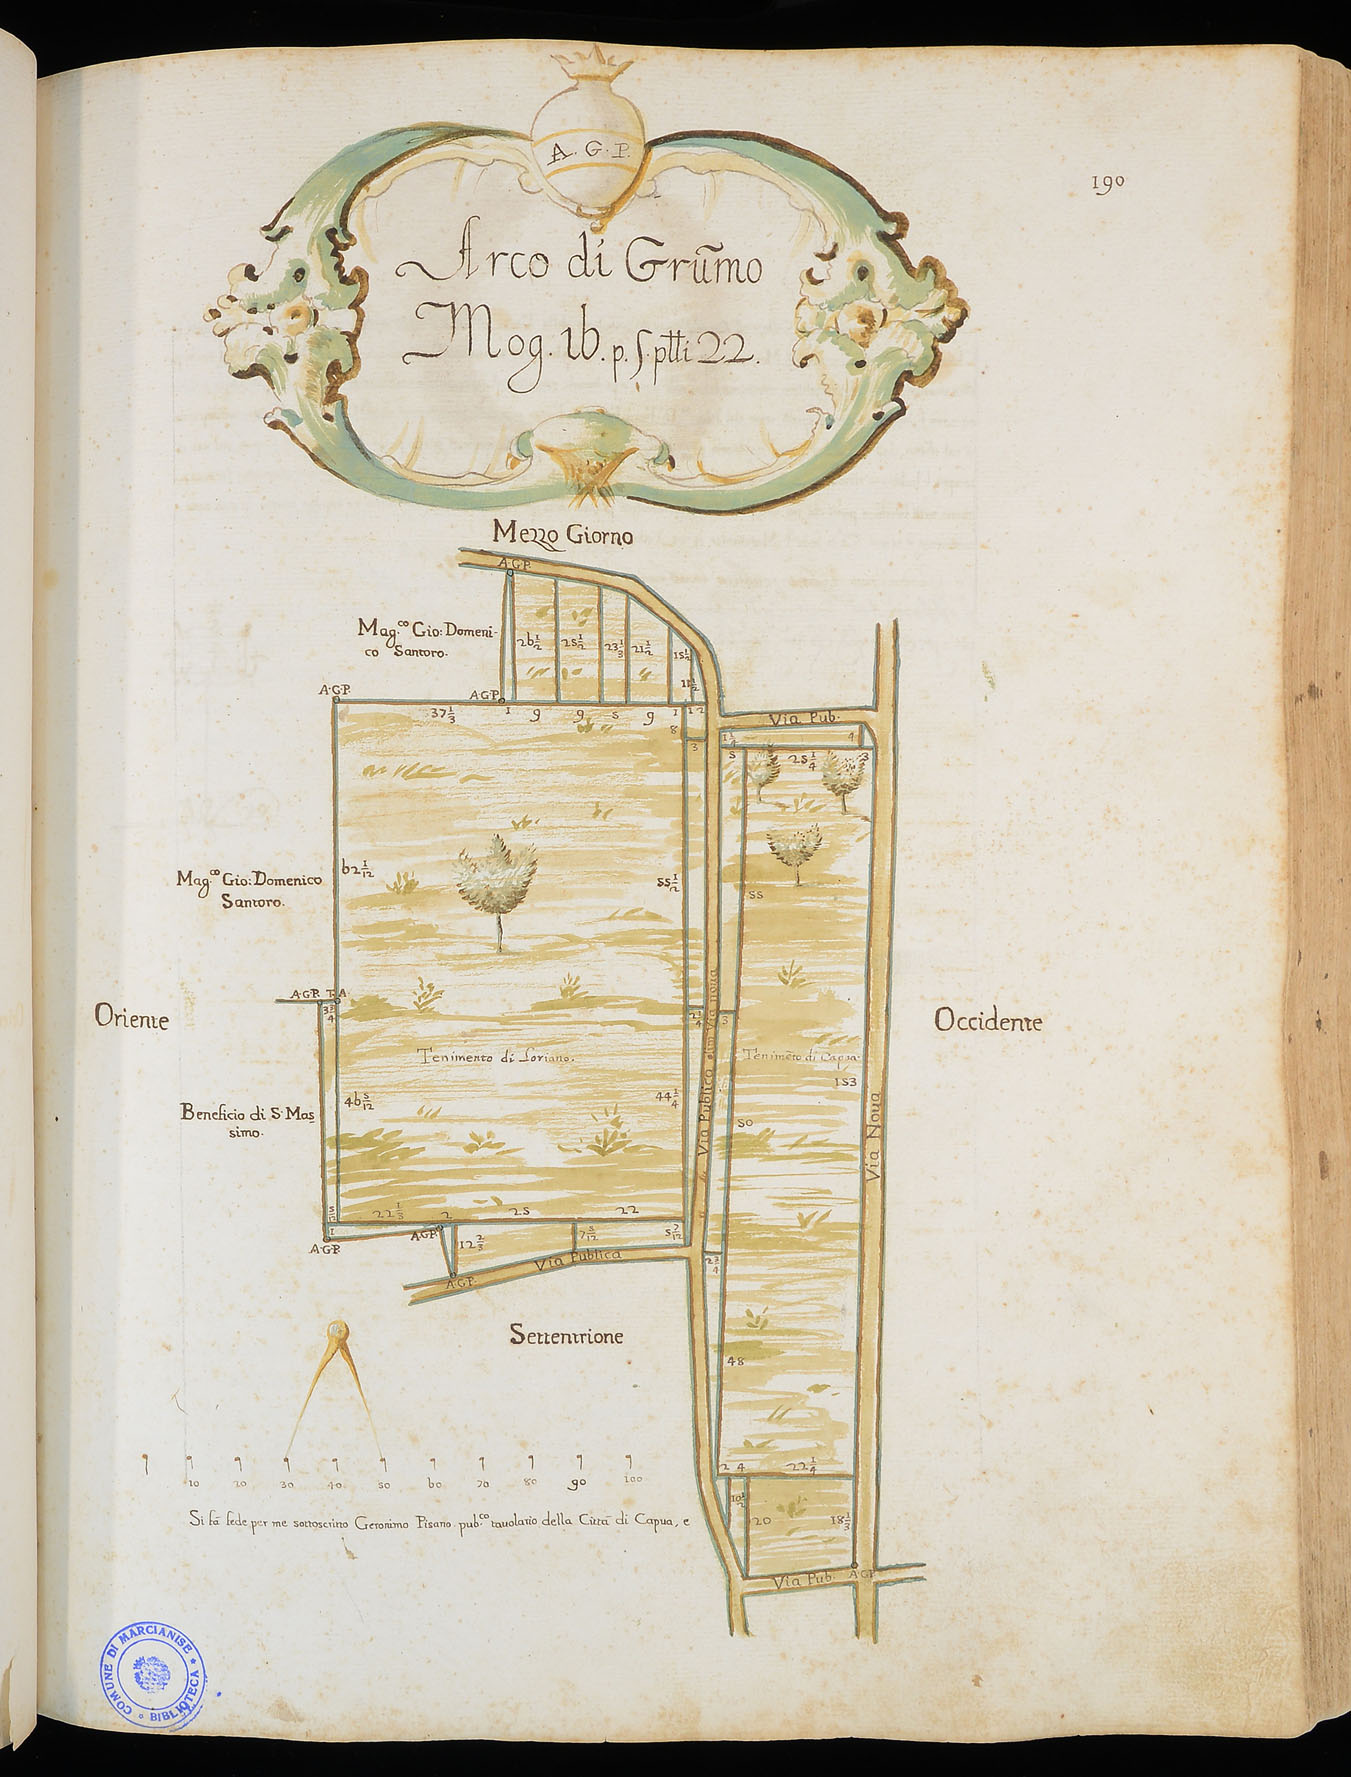 190
A. G. P.
Arco di Grũmo
Mog. 1b. p. 5. ptti 22.
Mezzo Giorno
A.G.P.
Mag.co Gio: Domeni-
co Santoro.
2b 1/2
25 1/2
23 1/3
21 1/2
15 1/2
A.G.P.
A.G.P.
37 1/3
1
9
9
5
9
1
12
8
3
Via Pub.
1 1/4
4
5
25 1/4
3
Mag.co Gio: Domenico
Santoro.
b2 1/12
55 1/2
55
A.G.P. T.A.
3 3/4
Oriente
Occidente
3
Tenimento di Loriano.
Tenimẽto di Capua.
153
Via Publica olim Via noua
Via Noua
Beneficio di S. Mas
simo.
4b 5/12
44 1/4
50
22 1/3
2
25
22
1
A.G.P.
A.G.P.
12 2/3
7 5/12
5 7/12
Via Publica
A.G.P.
2 3/4
Settentrione
48
2 4
22 1/4
10 20 30 40 50 b0 70 80 90 100
10 1/2
20
18 1/3
Si fà fede per me sottoscritto Geronimo Pisano pub.co tauolario della Città di Capua, e
Via Pub.
A.G.P.
COMUNE DI MARCIANISE * BIBLIOTECA *